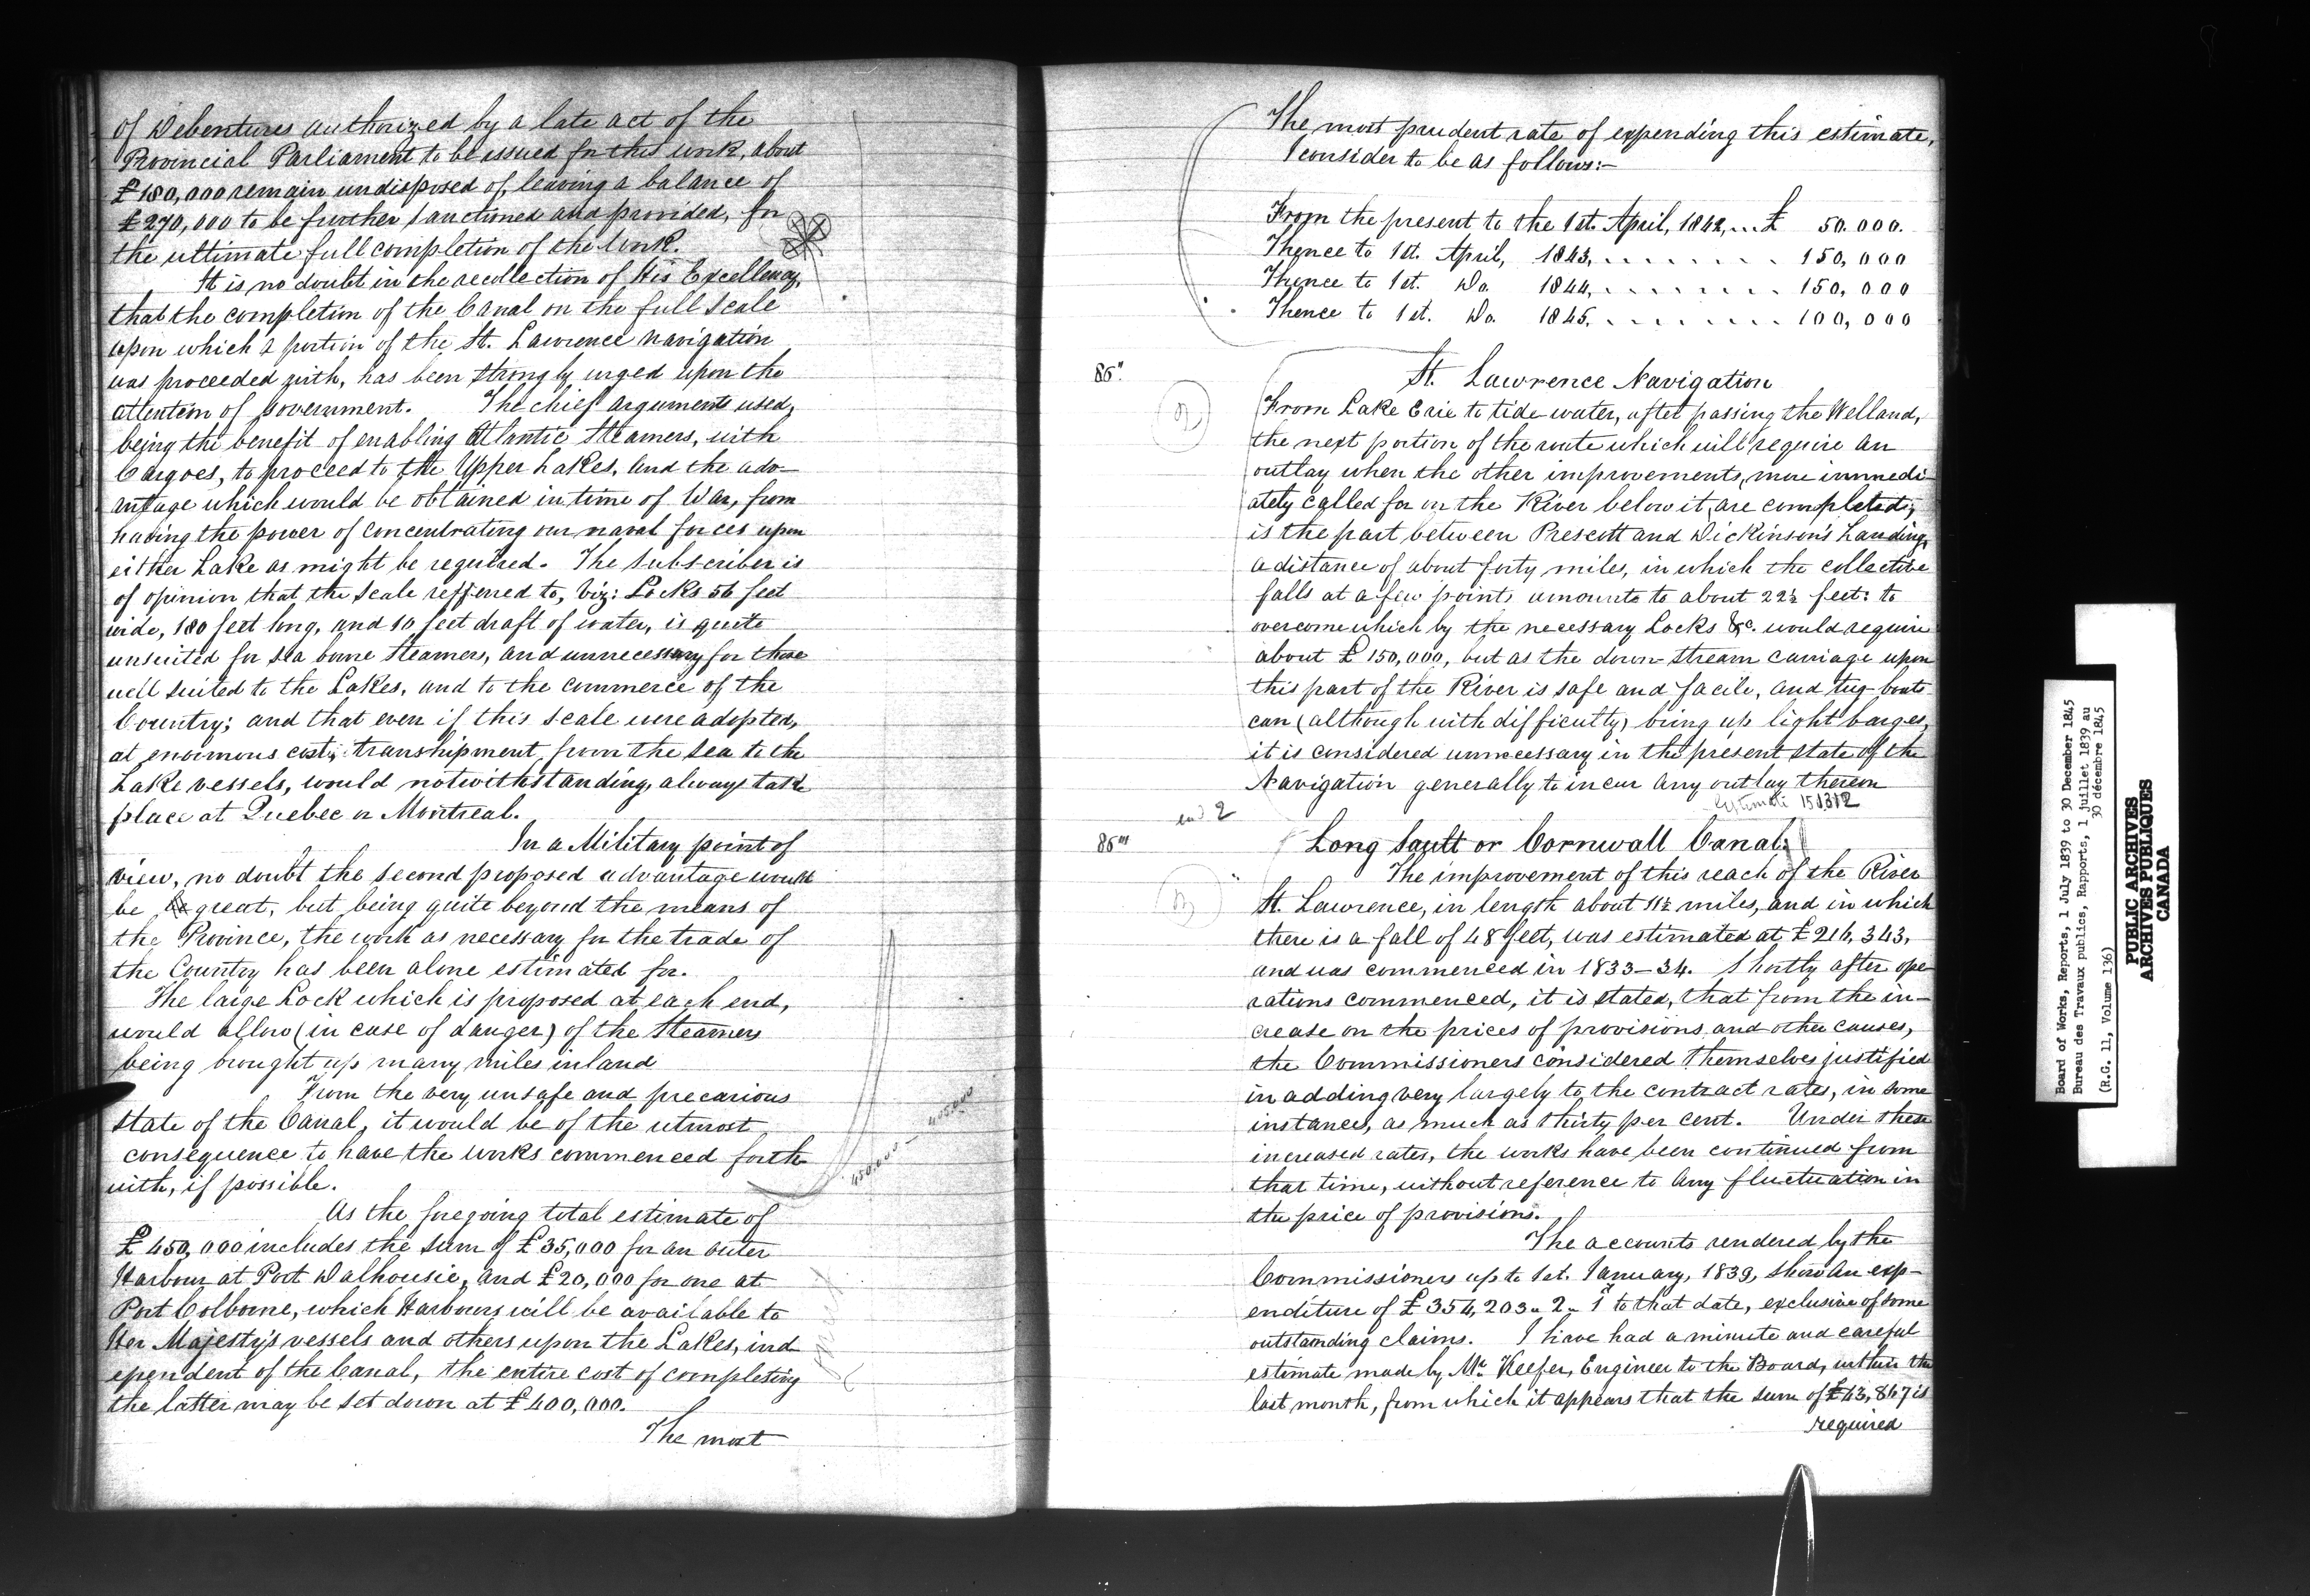 of Debentures authorized by a late act of the
Provincial Parliament to be issued for this work, about
£180,000 remain undisposed of, leaving a balance of
£270,000 to be further sanctioned and provided, for
the ultimate full completion of the Work.
It is no doubt in the recollection of His Excellency,
that the completion of the Canal on the full scale
upon which a portion of the St. Lawrence navigation
was proceeded with, has been strongly urged upon the
attention of Government. The chief arguments used,
being the benefit of enabling Atlantic Steamers, with
Cargoes, to proceed to the Upper Lakes, and the adv-
antage which would be obtained in time of War, from
having the power of concentrating our naval forces upon
either Lake as might be required. The subscriber is
of opinion that the scale refferred to, Viz: Locks 56 feet
wide, 180 feet long, and 10 feet draft of water, is quite
unsuited for sea borne steamers, and unnecessary for those
well suited to the Lakes, and to the commerce of the
Country; and that even if this scale were adopted,
at enormous cost, transhipment from the sea to the
Lake vessels, would notwithstanding, always take
place at Quebec or Montreal.
In a Military point of
view, no doubt the second proposed advantage would
be great, but being quite beyond the means of
the Province, the work as necessary for the trade of
the Country has been alone estimated for.
The large Lock which is proposed at each end,
would allow (in case of danger) of the Steamers
being brought up many miles inland
From the very unsafe and precarious
state of the Canal, it would be of the utmost
consequence to have the works commenced forth
with, if possible.
As the foregoing total estimate of
£450,000 includes the sum of £35,000 for an outer
Harbour at Port Dalhousie, and £20,000 for one at
Port Colborne, which Harbours will be available to
Her Majesty's vessels and others upon the Lakes, ind-
ependent of the Canal, the entire cost of completing
the latter may be set down at £400,000.
The most
The most prudent rate of expending this estimate,
I consider to be as follows:-
From the present to the 1st. April, 1842,... £ 50.000.
Thence to 1st. April, 1843, . . . . . . . 150,000
Thence to 1st. Do. 1844, . . . . . . . 150,000
Thence to 1st. Do. 1845. . . . . . . . 100,000
86"
St. Lawrence Navigation
2
From Lake Erie to tide-water, after passing the Welland,
the next portion of the route which will require an
outlay when the other improvements, more immedi-
ately called for on the River below it, are completed,
is the part between Prescott and Dickinson's Landing,
a distance of about forty miles, in which the collective
falls at a few points amounts to about 22½ feet: to
overcome which by the necessary Locks &c. would require
about £150,000, but as the down-stream carriage upon
this part of the River is safe and facile, and tug-boats
can (although with difficulty) bring up light barges,
it is considered unnecessary in the present state of the
Navigation generally to incur any outlay thereon
Estimate 151312
end 2
86'''
Long Sault or Cornwall Canal.
The improvement of this reach of the River
St. Lawrence, in length about 11½ miles, and in which
there is a fall of 48 feet, was estimated at £216,343,
and was commenced in 1833-34. Shortly after ope-
rations commenced, it is stated, that from the in-
crease on the prices of provisions and other causes,
the Commissioners considered themselves justified
in adding very largely to the contract rates, in some
instances, as much as thirty per cent. Under these
increased rates, the works have been continued from
that time, without reference to any fluctuation in
the price of provisions.
The accounts rendered by the
Commissioners up to 1st. January, 1839, show an exp-
enditure of £354,203 " 2 " 1d to that date, exclusive of some
outstanding claims. I have had a minute and careful
estimate made by Mr. Keefer, Engineer to the Board, within the
last month, from which it appears that the sum of £43,867 is
required
Board of Works, Reports, 1 July 1839 to 30 December 1845
Bureau des Travaux publics, Rapports, 1 juillet 1839 au
30 décembre 1845
(R.G. 11, Volume 136)
PUBLIC ARCHIVES
ARCHIVES PUBLIQUES
CANADA